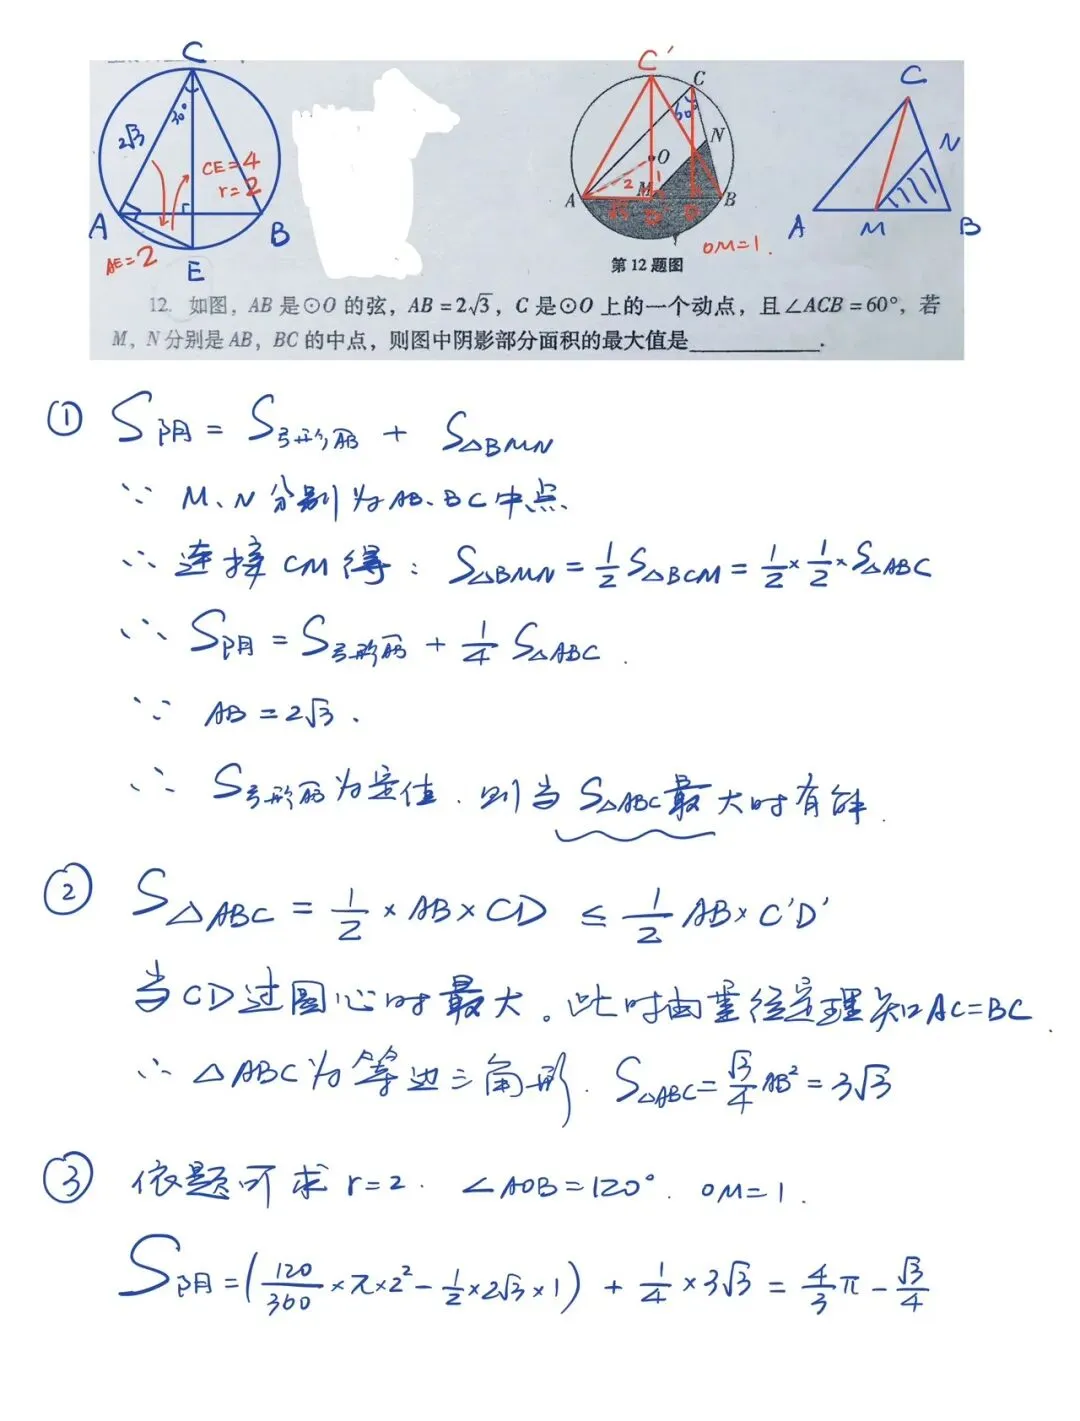 C
30°
2√3
CE=4
r=2
A
B
AE=2
E
C'
C
60°
N
O
2
M
1
A
B
√3
D'
D
OM=1.
第12题图
C
N
A
M
B
12. 如图，AB 是⊙O 的弦，AB=2√3，C 是⊙O 上的一个动点，且∠ACB=60°，若
M，N 分别是 AB，BC 的中点，则图中阴影部分面积的最大值是________.
① S阴 = S弓形AB + S△BMN
∵ M、N分别为AB、BC中点.
∴ 连接CM得：S△BMN = 1/2 S△BCM = 1/2 × 1/2 × S△ABC
∴ S阴 = S弓形AB + 1/4 S△ABC.
∵ AB = 2√3.
∴ S弓形AB为定值. 则当S△ABC最大时有解.
② S△ABC = 1/2 × AB × CD ≤ 1/2 AB × C'D'
当CD过圆心时最大。此时由垂径定理知AC=BC.
∴ △ABC为等边三角形. S△ABC = √3/4 AB² = 3√3
③ 依题可求 r=2. ∠AOB=120°. OM=1.
S阴 = (120/360 × π × 2² - 1/2 × 2√3 × 1) + 1/4 × 3√3 = 4/3 π - √3/4